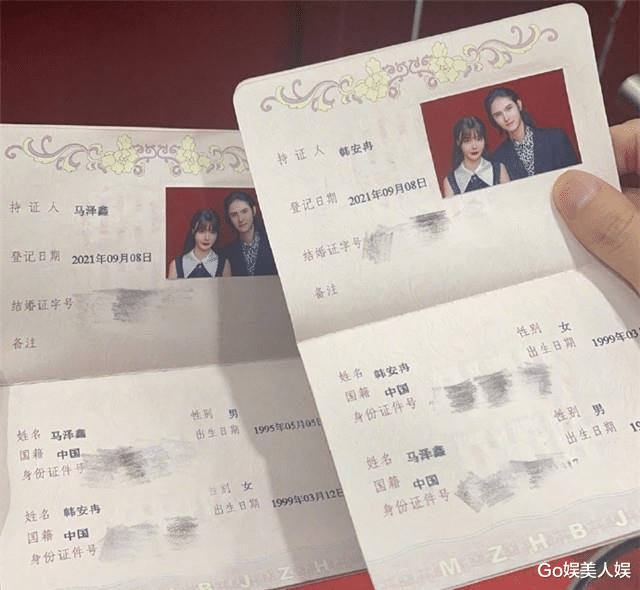 持证人 马泽鑫
登记日期 2021年09月08日
结婚证字号
备注
姓名 马泽鑫 性别 男
国籍 中国 出生日期 1995年05月05日
身份证件号
姓名 韩安冉 性别 女
国籍 中国 出生日期 1999年03月12日
身份证件号
持证人 韩安冉
登记日期 2021年09月08日
结婚证字号
备注
姓名 韩安冉 性别 女
国籍 中国 出生日期 1999年03
身份证件号
姓名 马泽鑫 性别 男
国籍 中国 出生日期
身份证件号
BJZH
MZHBJ
Go娱美人娱